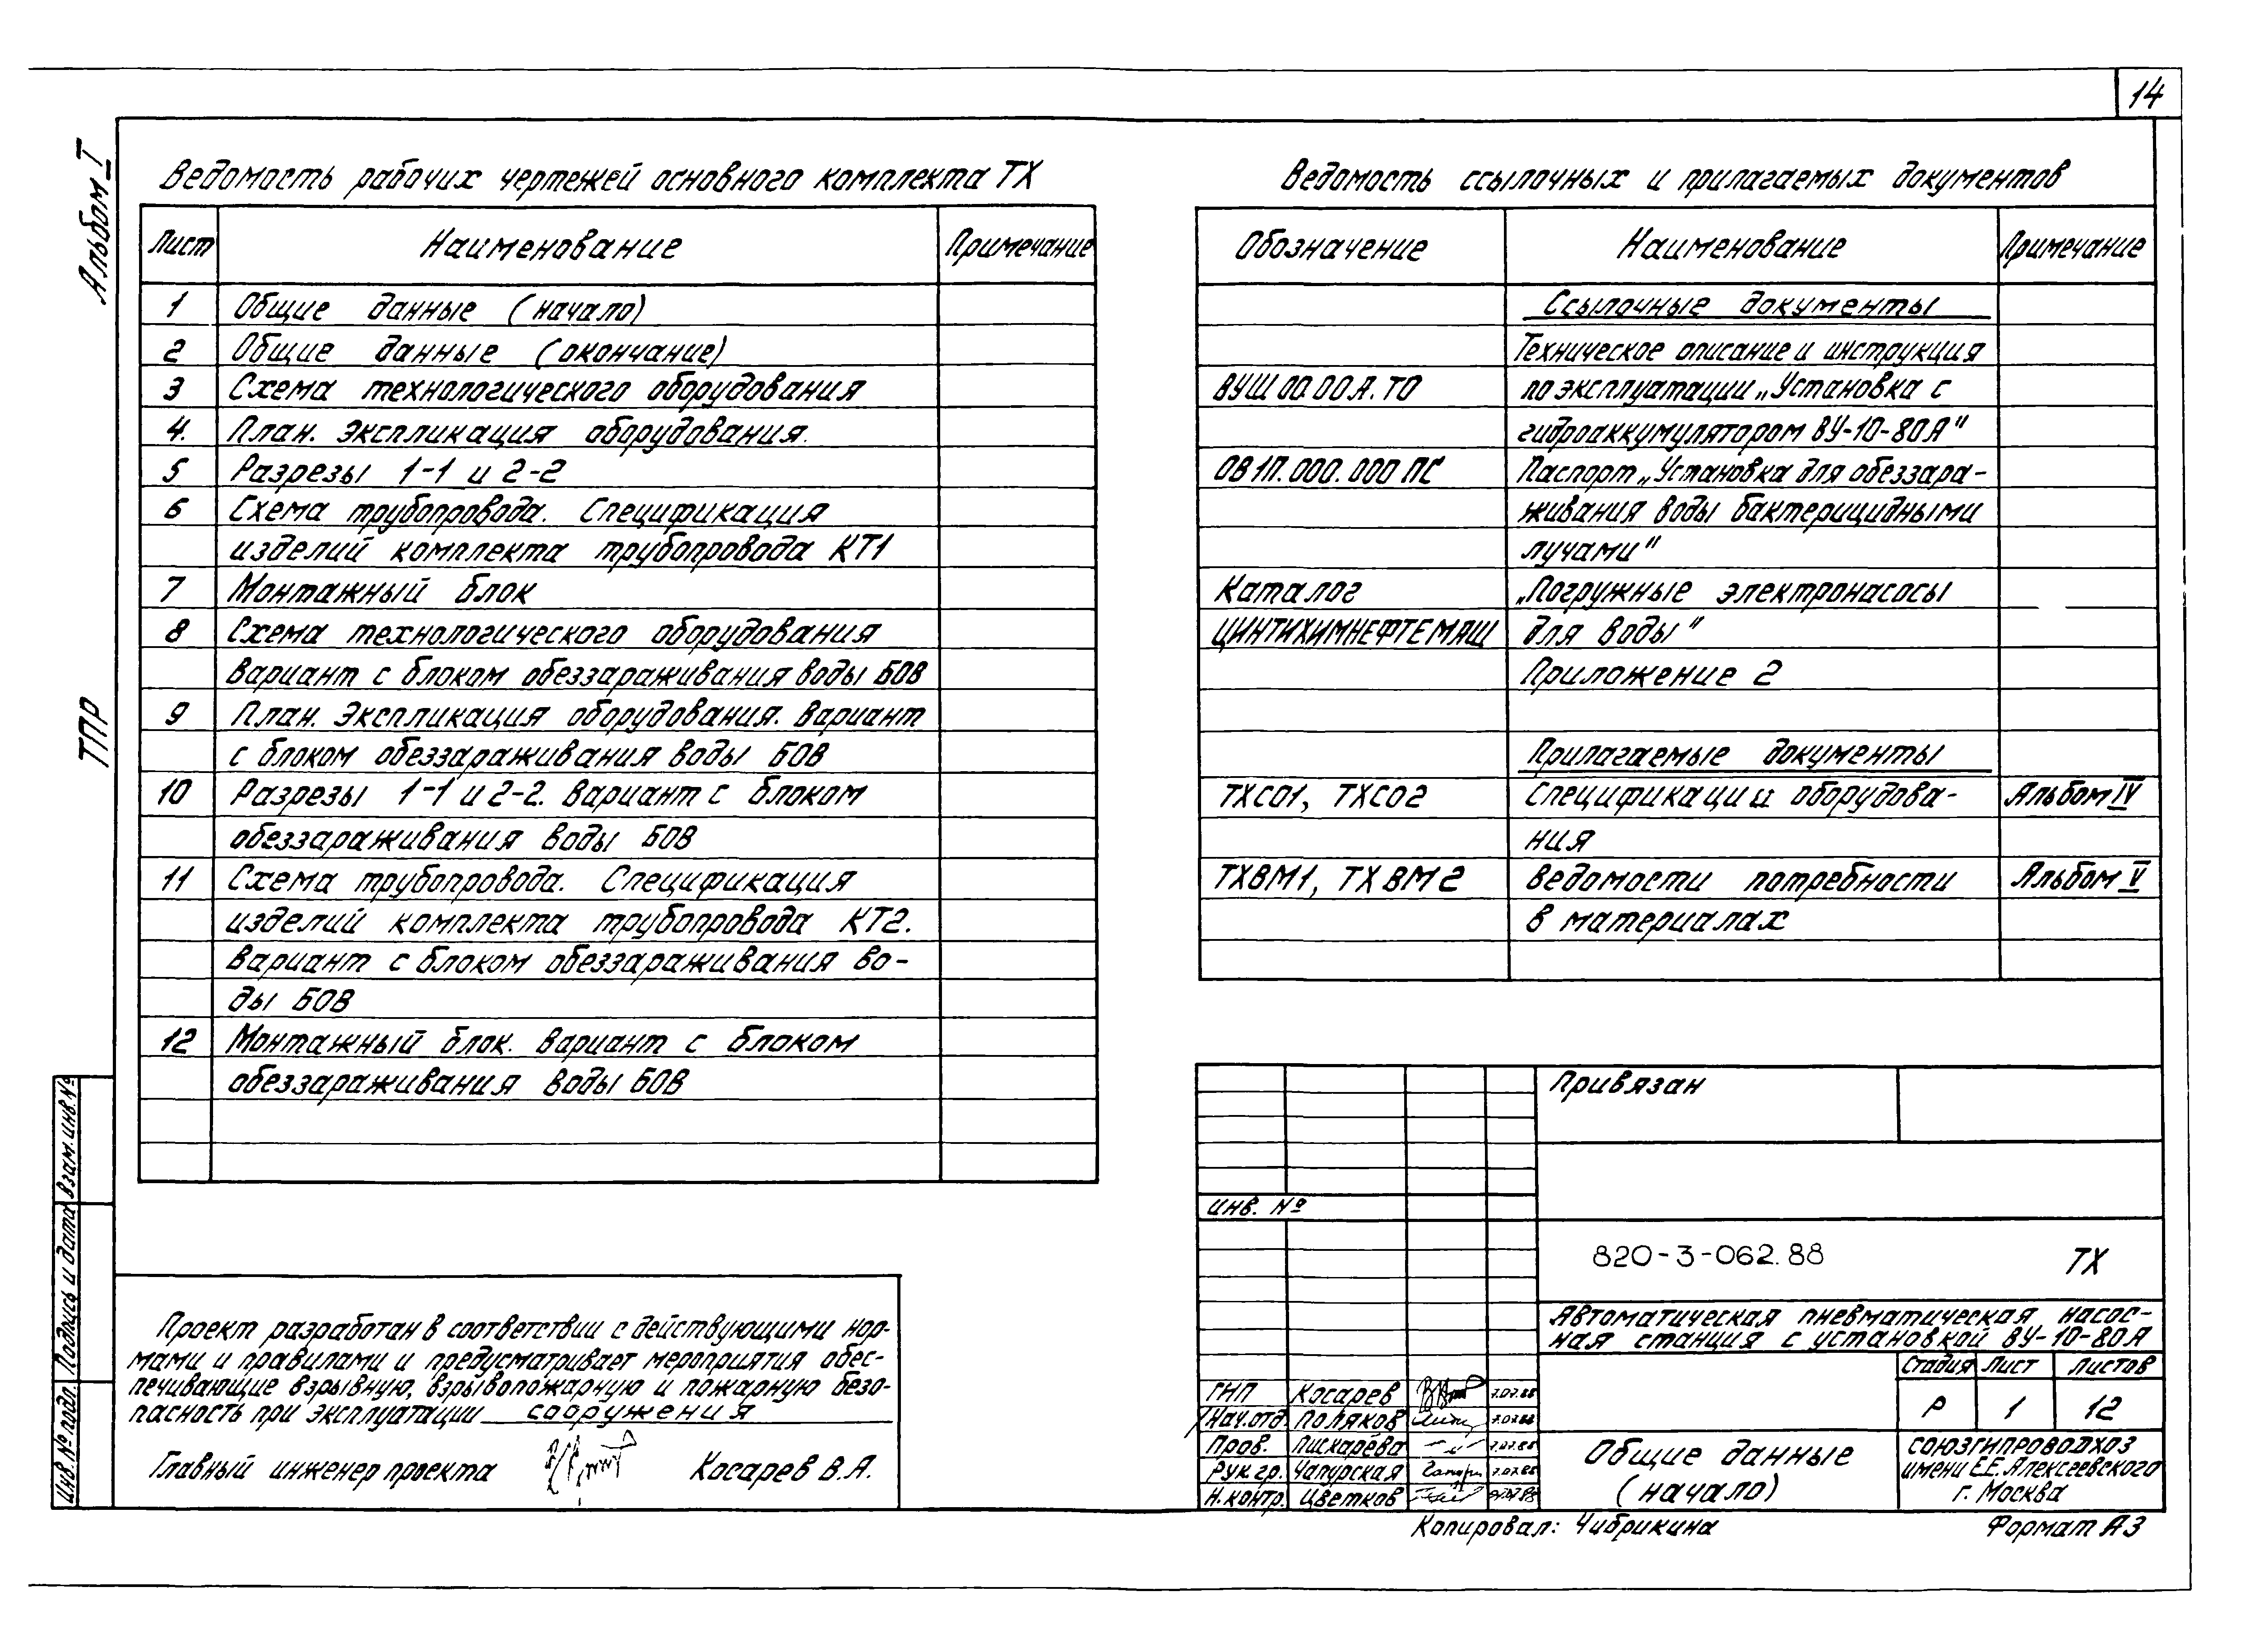 14
Альбом I
ТПР
Ведомость рабочих чертежей основного комплекта ТХ
Лист Наименование Примечание
1 Общие данные (начало)
2 Общие данные (окончание)
3 Схема технологического оборудования
4. План. Экспликация оборудования.
5 Разрезы 1-1 и 2-2
6 Схема трубопровода. Спецификация
изделий комплекта трубопровода КТ1
7 Монтажный блок
8 Схема технологического оборудования
Вариант с блоком обеззараживания воды БОВ
9 План. Экспликация оборудования. Вариант
с блоком обеззараживания воды БОВ
10 Разрезы 1-1 и 2-2. Вариант с блоком
обеззараживания воды БОВ
11 Схема трубопровода. Спецификация
изделий комплекта трубопровода КТ2.
Вариант с блоком обеззараживания во-
ды БОВ
12 Монтажный блок. Вариант с блоком
обеззараживания воды БОВ
Ведомость ссылочных и прилагаемых документов
Обозначение Наименование Примечание
Ссылочные документы
Техническое описание и инструкция
ВУШ 00.00А.ТО по эксплуатации „Установка с
гидроаккумулятором ВУ-10-80А"
ОВ1П.000.000 ПС Паспорт „Установка для обеззара-
живания воды бактерицидными
лучами"
Каталог „Погружные электронасосы
ЦИНТИХИМНЕФТЕМАШ для воды"
Приложение 2
Прилагаемые документы
ТХСО1, ТХСО2 Спецификации оборудова- Альбом IV
ния
ТХВМ1, ТХВМ2 Ведомости потребности Альбом V
в материалах
Взам. инв. №
Подпись и дата
Инв. № подл.
Проект разработан в соответствии с действующими нор-
мами и правилами и предусматривает мероприятия обес-
печивающие взрывную, взрывопожарную и пожарную безо-
пасность при эксплуатации сооружения
Главный инженер проекта Косарев В.А.
Привязан
Инв. №
820-3-062.88 ТХ
Автоматическая пневматическая насос-
ная станция с установкой ВУ-10-80А
Стадия Лист Листов
Р 1 12
ГИП Косарев 7.07.88
Нач.отд. Поляков 7.07.88
Пров. Пискарёва 7.07.88
Рук.гр. Чапурская 7.07.88
Н.контр. Цветков
Общие данные
(начало)
СОЮЗГИПРОВОДХОЗ
имени Е.Е. Алексеевского
г. Москва
Копировал: Чибрикина Формат А3